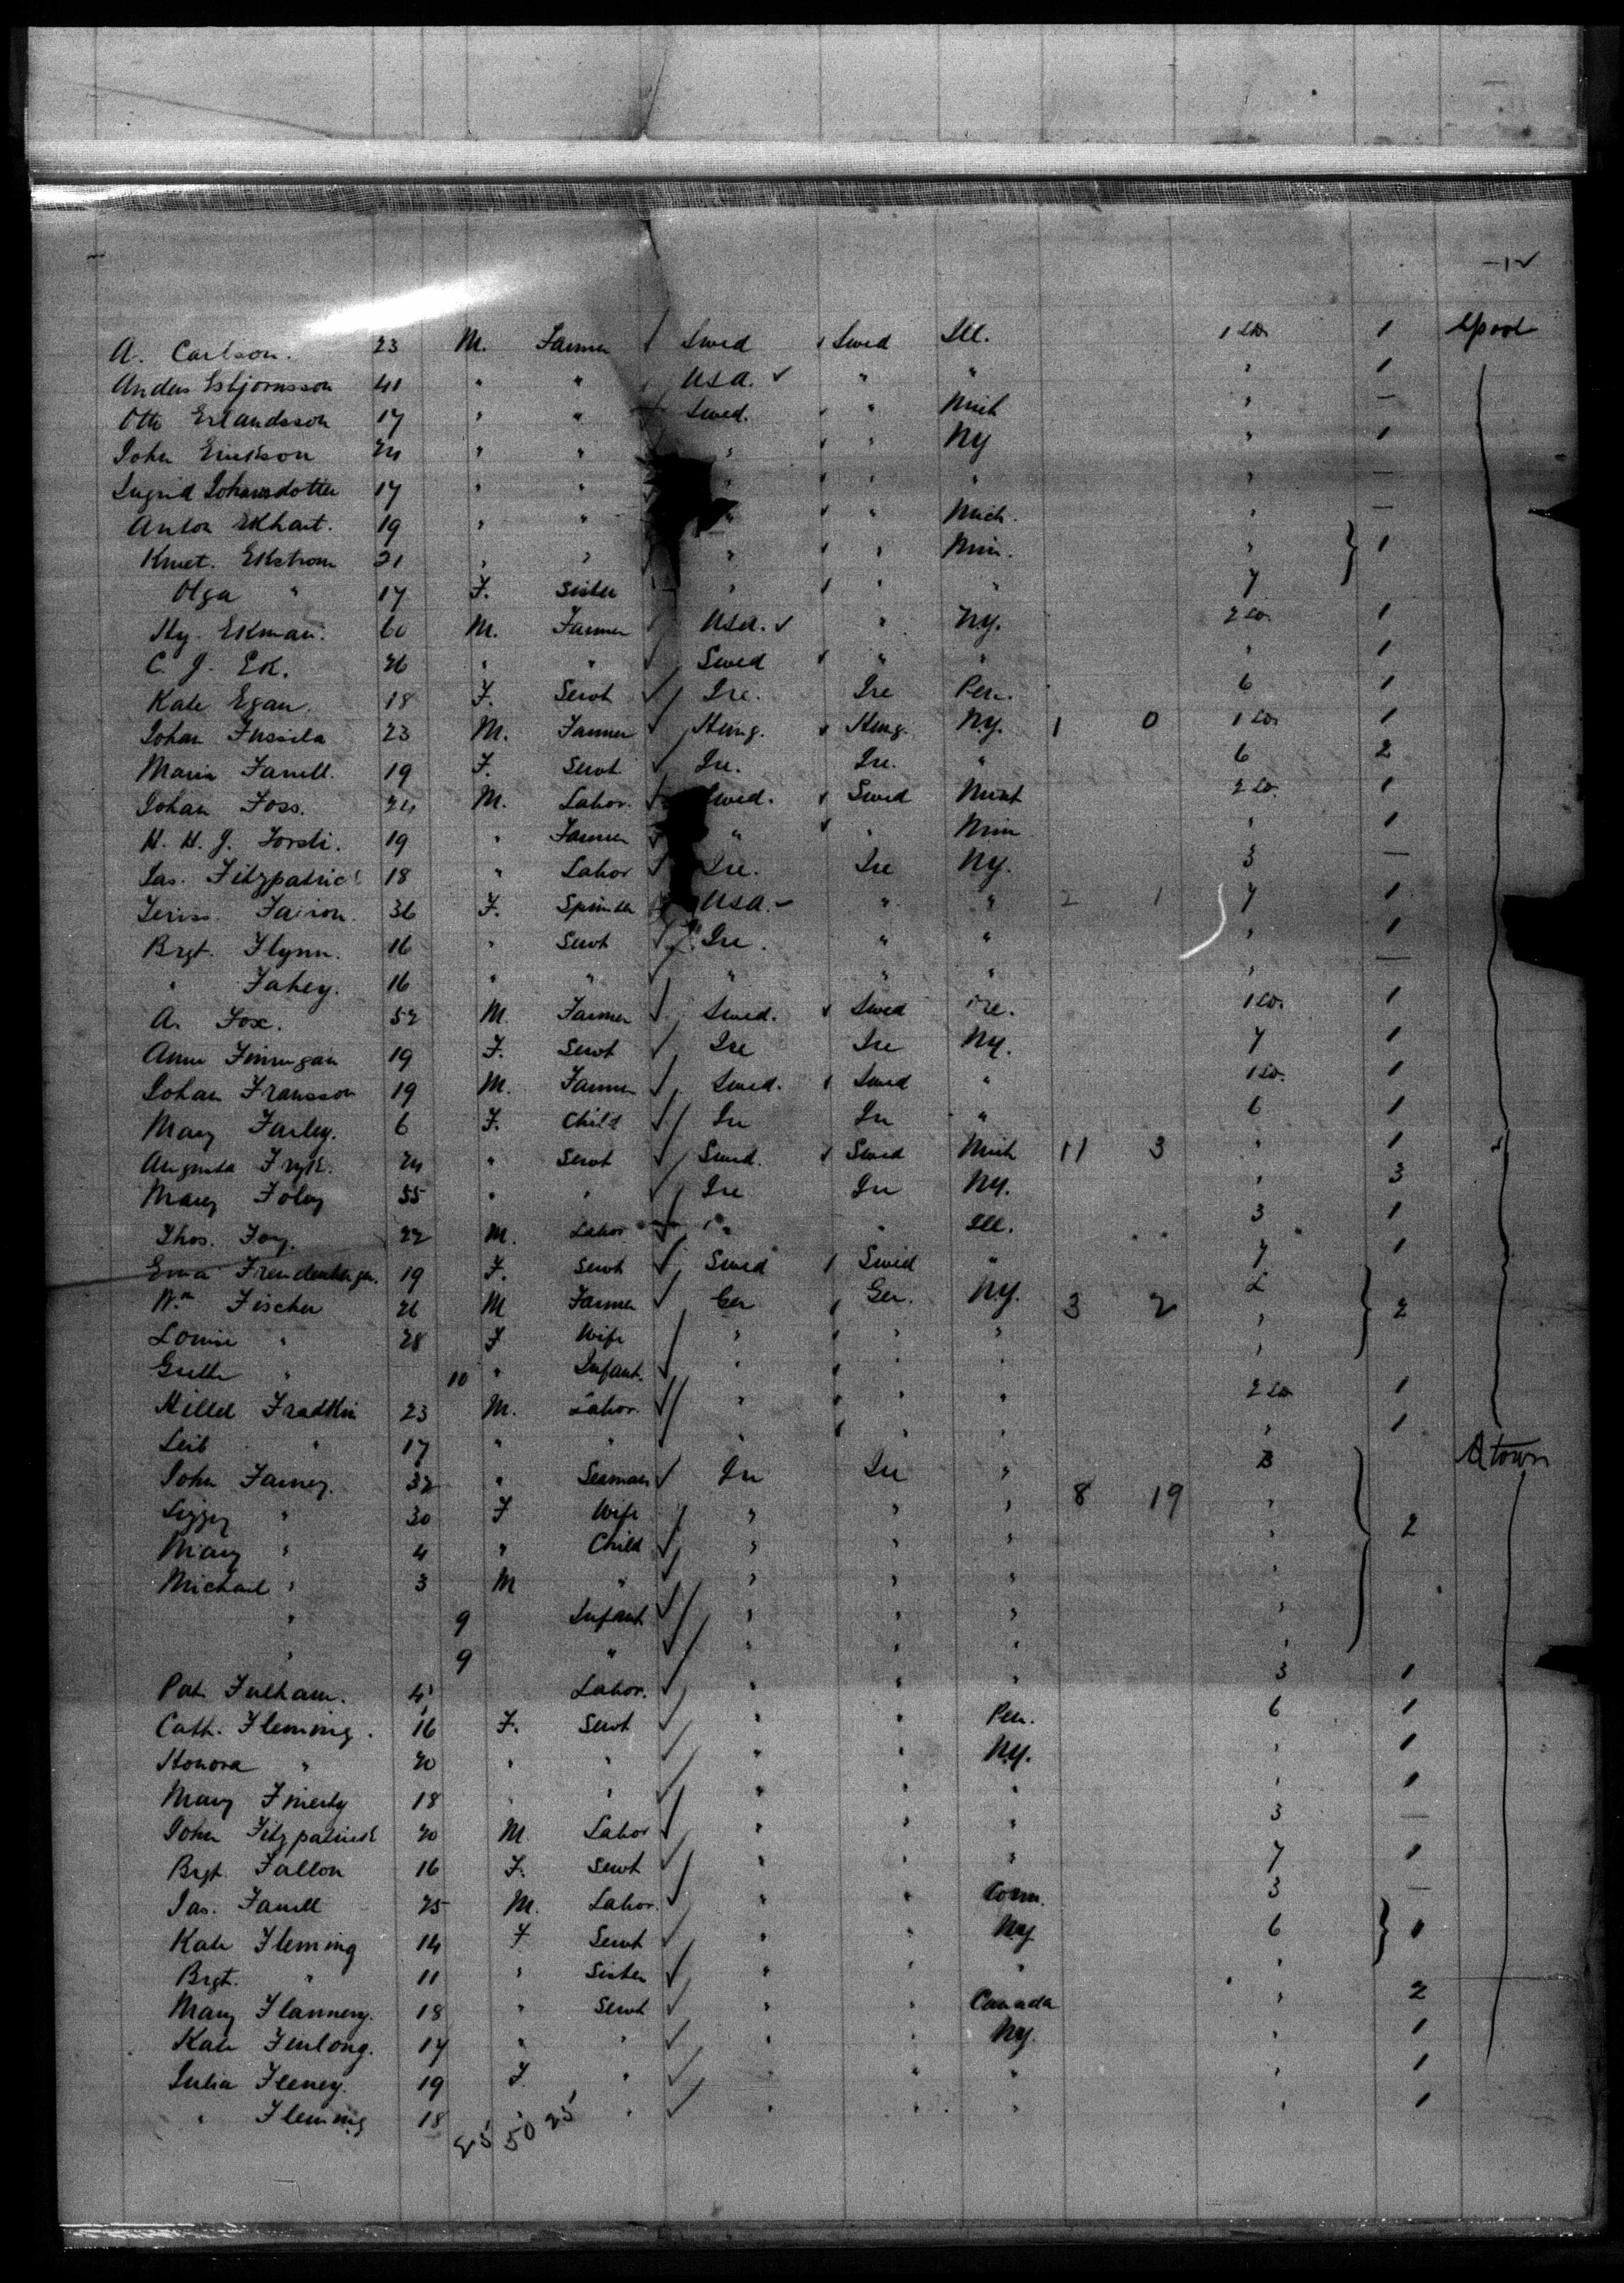 — 1 ✓
A. Carlson. 23 M. Farmer Swed Swed Ill. 1 1 Lpool
Anders Esbjornsson 41 " " USA. ✓ " " " 1
Otto Erlandsson 17 " " Swed. " Mich " —
John Erickson 24 " " " " NY " 1
Ingrid Johansdotter 17 " " " " " " —
Anton Ekhart. 19 " " " " Mich. " —
Knut. Ekstrom 21 " " " " Min. " 1
Olga " 17 F. Sister " " " 7
Hy. Ekman. 60 M. Farmer USA. ✓ " NY. 2 1
C. J. Ek. 26 " " Swed " " " 1
Kate Egan. 18 F. Servt Ire. Ire Pen. 6 1
Johan Fussila 23 M. Farmer Hung. Hung. N.Y. 1 0 1 1
Maria Farrell. 19 F. Servt Ire. Ire. " 6 2
Johan Foss. 24 M. Labor. Swed. Swed Mich 2 1
H. H. J. Forsti. 19 " Farmer " " Min " 1
Jas. Fitzpatrick 18 " Labor Ire. Ire NY. 3 —
Fairon. 36 F. Spinster USA. " " 2 1 7 1
Brgt. Flynn. 16 " Servt Ire. " " " 1
" Fahey. 16 " " " " " " —
A. Fox. 52 M. Farmer Swed. Swed 1 1
Anne Finnegan 19 F. Servt Ire Ire NY. 7 1
Johan Fransson 19 M. Farmer Swed. Swed " 1 1
Mary Farley. 6 F. Child Ire Ire " 6 1
Augusta Fryk. 24 " Servt Swed. Swed Mich 11 3 " 1
Mary Foley 55 " " Ire Ire NY. " 3
Thos. Foy. 22 M. Labor " " Ill. 3 1
Ema 19 F. Servt Swed Swed " 7 1
Wm Fischer 26 M Farmer Ger Ger. N.Y. 3 2 L 2
Louise " 28 F Wife " " " "
" 10 " Infant. " " " "
Hillel Fradkin 23 M. Labor. " " " 2 1
Leib " 17 " " " " " " 1
John Farney. 32 " Seaman Ire Ire " 8 19 3 Qtown
Lizzy " 30 F Wife " " " " 2
Mary " 4 " Child " " " "
Michael " 3 M " " " " "
" 9 Infant " " " "
" 9 " " " " "
Pat Fulham. 41 Labor. " " " 3 1
Cath. Fleming. 16 F. Servt " " Pen. 6 1
Honora " 20 " " " " N.Y. " 1
Mary Finerty 18 " " " " " " 1
John Fitzpatrick 20 M. Labor " " " 3 —
Brgt. Fallon 16 F. Servt " " " 7 1
Jas. Farrell 25 M. Labor. " " Conn. 3 —
Kate Fleming 14 F Servt " " NY 6 1
Brgt. " 11 " Sister " " " "
Mary Flannery. 18 " Servt " " Canada " 2
Kate Furlong. 17 " " " " NY. " 1
Julia Feeney. 19 F. " " " " " 1
" Fleming 18 " " " " " " 1
25 50 25